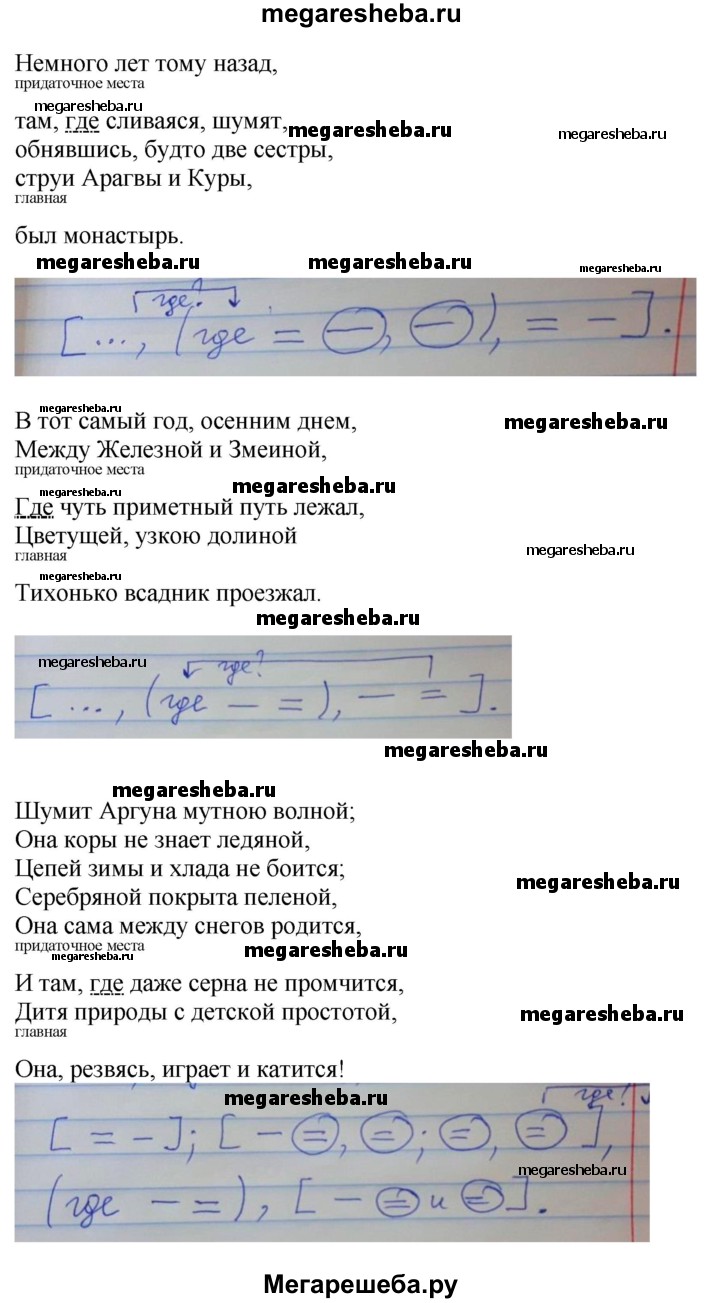 megaresheba.ru
Немного лет тому назад,
придаточное места
megaresheba.ru
там, где сливаяся, шумят,
megaresheba.ru
megaresheba.ru
обнявшись, будто две сестры,
струи Арагвы и Куры,
главная
был монастырь.
megaresheba.ru
megaresheba.ru
megaresheba.ru
где?
[..., (где = —, —), = —].
megaresheba.ru
В тот самый год, осенним днем,
megaresheba.ru
Между Железной и Змеиной,
придаточное места
megaresheba.ru
megaresheba.ru
Где чуть приметный путь лежал,
Цветущей, узкою долиной
главная
megaresheba.ru
megaresheba.ru
Тихонько всадник проезжал.
megaresheba.ru
megaresheba.ru
где?
[ ..., (где — =), — = ].
megaresheba.ru
megaresheba.ru
Шумит Аргуна мутною волной;
Она коры не знает ледяной,
Цепей зимы и хлада не боится;
megaresheba.ru
Серебряной покрыта пеленой,
Она сама между снегов родится,
придаточное места
megaresheba.ru
megaresheba.ru
И там, где даже серна не промчится,
Дитя природы с детской простотой,
megaresheba.ru
главная
Она, резвясь, играет и катится!
megaresheba.ru
где?
[ = — ]; [ — =, =; =, = ],
megaresheba.ru
(где — =), [ — = и = ].
Мегарешеба.ру